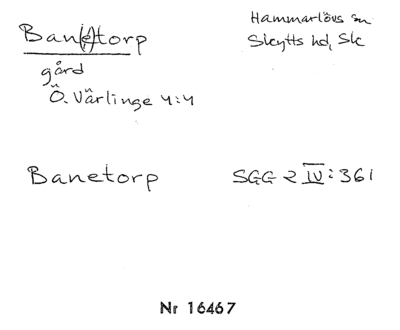 Ban(e)torp
Hammarlövs sn
Skytts hd, Sk
gård
Ö. Värlinge 4:4
Banetorp
SGG 2 IV: 361
Nr 16467